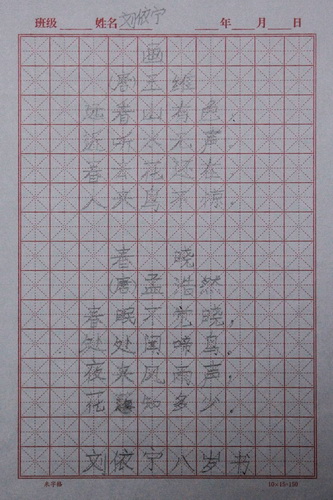 班级 姓名 刘依宁 年 月 日
画
唐 王维
远看山有色,
近听水无声,
春去花还在,
人来鸟不惊。
春晓
(唐)孟浩然
春眠不觉晓,
处处闻啼鸟。
夜来风雨声,
花 知多少。
刘依宁八岁书
米字格 10×15=150